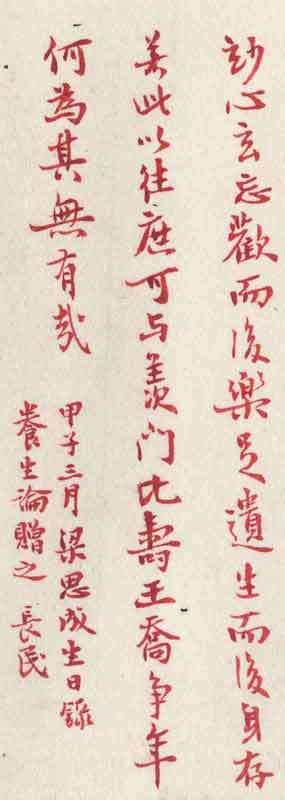 妙心玄忘歡而後樂足遺生而後身存
若此以往庶可与羨門比壽王喬争年
何為其無有哉
甲子三月梁思成生日錄
養生論贈之 長民